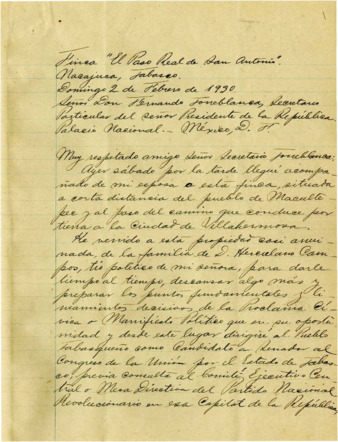 Finca "El Paso Real de San Antonio".
Nacajuca, Tabasco.
Domingo 2 de Febrero de 1930
Señor Don Hernando Torreblanca, Secretario
Particular del señor Presidente de la República
Palacio Nacional.— México, D. F.
Muy respetado amigo Señor Secretario Torreblanca:
Ayer sábado por la tarde llegué acompa-
ñado de mi esposa a esta finca, situada
a corta distancia del pueblo de Maculte-
pec y al paso del camino que conduce por
tierra a la ciudad de Villahermosa.
He venido a esta propiedad casi arrui-
nada, de la familia de D. Herculano Cam-
pos, tío político de mi señora, para darle
tiempo al tiempo, descansar algo más y
preparar los puntos fundamentales y li-
neamientos decisivos de la Proclama Cí-
vica o Manifiesto Político que en su oportu-
nidad y desde este lugar dirigiré al Pueblo
Tabasqueño como Candidato a Senador al
Congreso de la Unión por el Estado de Tabas-
co, previa consulta al Comité Ejecutivo Cen-
tral o Mesa Directiva del Partido Nacional
Revolucionario en esa Capital de la República,